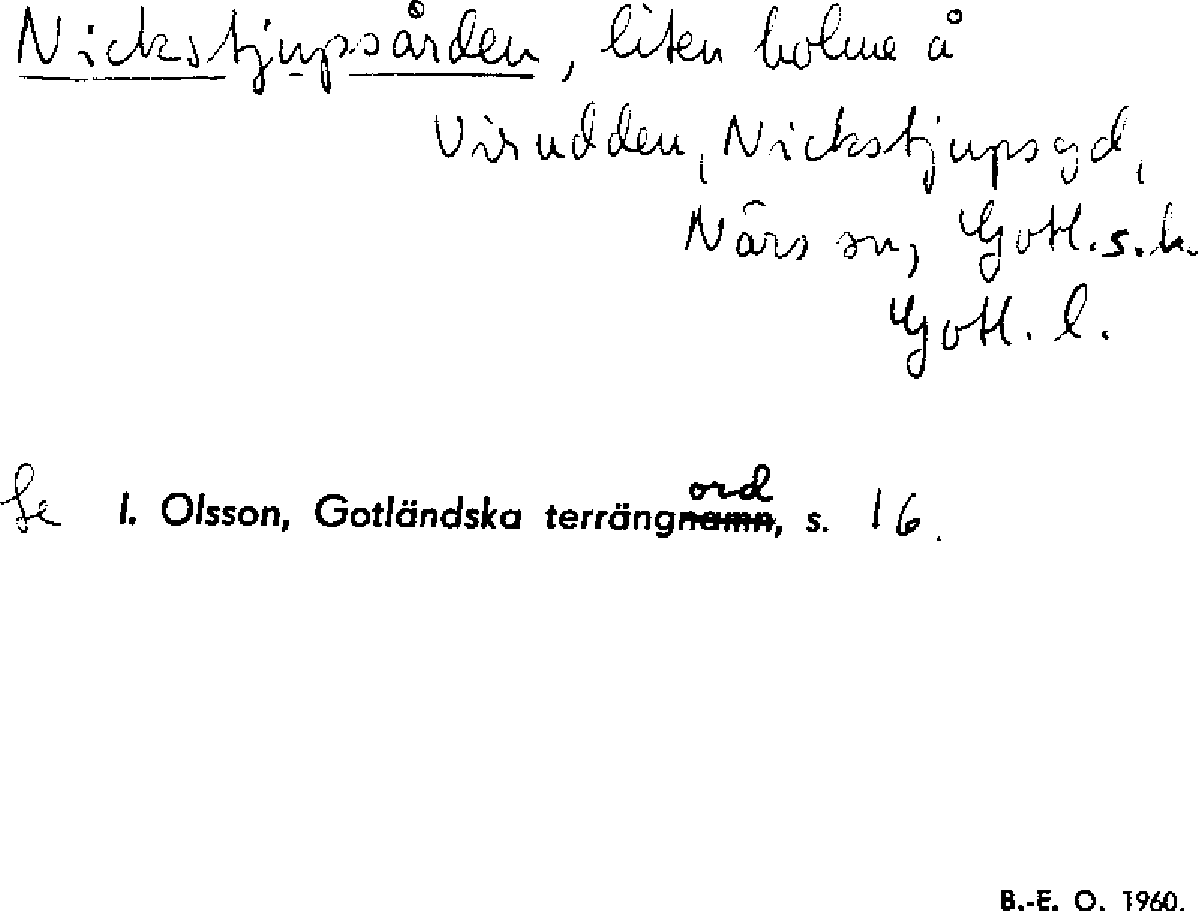 Nickstjupsården, liten holme å
Virudden, Nickstjupsgd,
Närs sn, Gotl. s. h.
Gotl. l.
Se I. Olsson, Gotländska terrängord, s. 16.
B.-E. O. 1960.